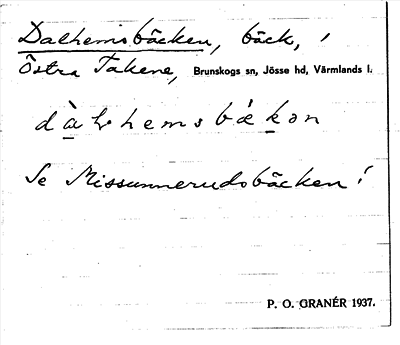 Dalhemsbäcken, bäck, i
Östra Takene, Brunskogs sn, Jösse hd, Värmlands l.
dàlhemsbäkən
Se Missunnerudsbäcken!
P. O. GRANÉR 1937.